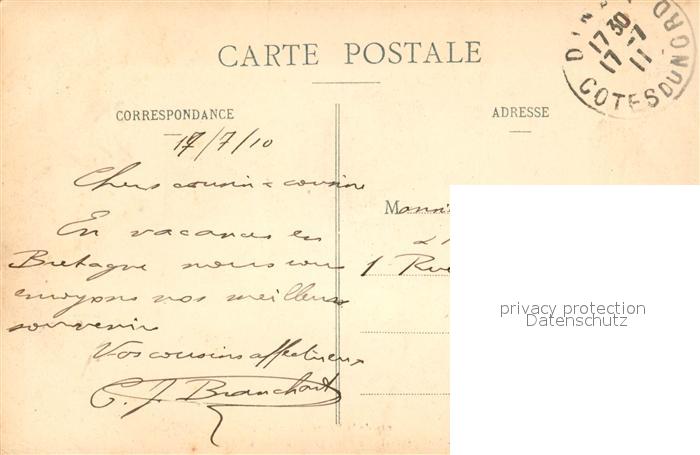 CARTE POSTALE
CORRESPONDANCE
ADRESSE
17/7/10
Chers cousin & cousine
En vacances en
Bretagne nous vous
envoyons nos meilleurs
souvenirs
Vos cousins affectueux
Branchart
Monsi
1 Rue
DIN
17 30
17-7
11
COTES DU NORD
privacy protection
Datenschutz